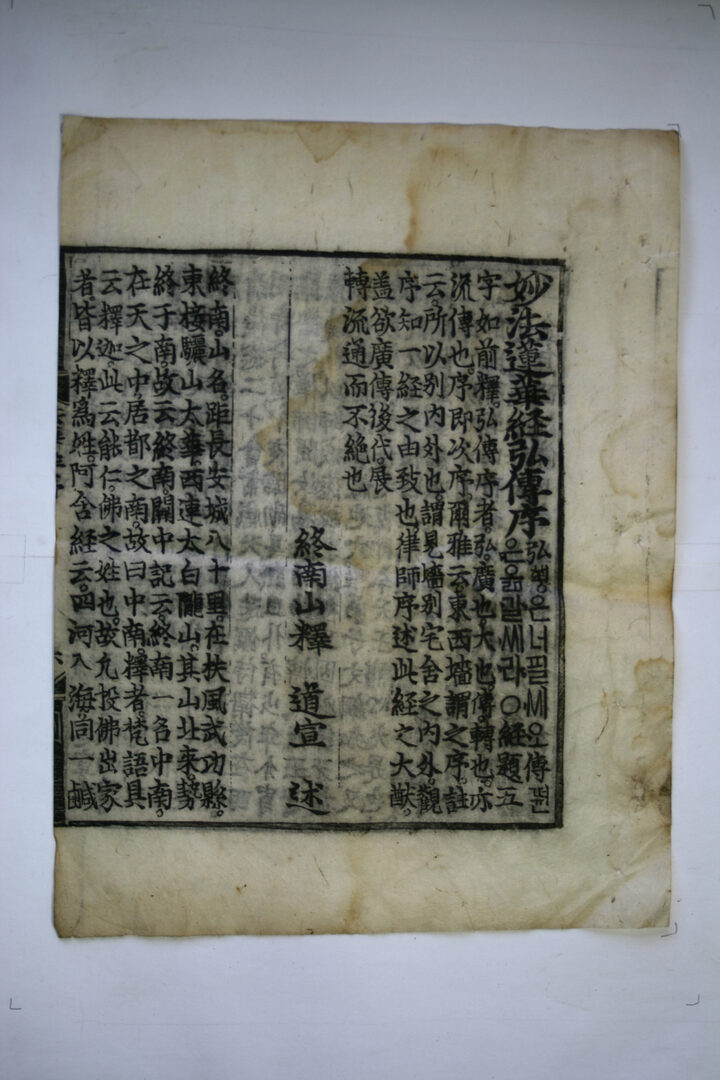 妙法蓮華経弘傳序 弘ᅘᅬᆼ은너필씨오傳뎐
은옮길씨라○經題五
字如前釋。弘傳序者。弘廣也。大也。傳轉也。亦
流傳也。序即次序。爾雅云。東西墻謂之序。註
云。所以別內外也。謂見墻別宅舍之內外。觀
序知一経之由致也。律師序述此経之大猷。
盖欲廣傳後代。展
轉流通而不絶也
終南山釋 道宣 述
終南。山名。距長安城八十里。在扶風武功縣。
東接驪山太華。西連太白隴山。其山北來。勢
終于南。故云終南。關中記云。終南一名中南。
在天之中。居都之南。故曰中南。釋者。梵語具
云釋迦。此云能仁。佛之姓也。故凡投佛出家
者皆以釋爲姓。阿含経云。四河入海。同一鹹